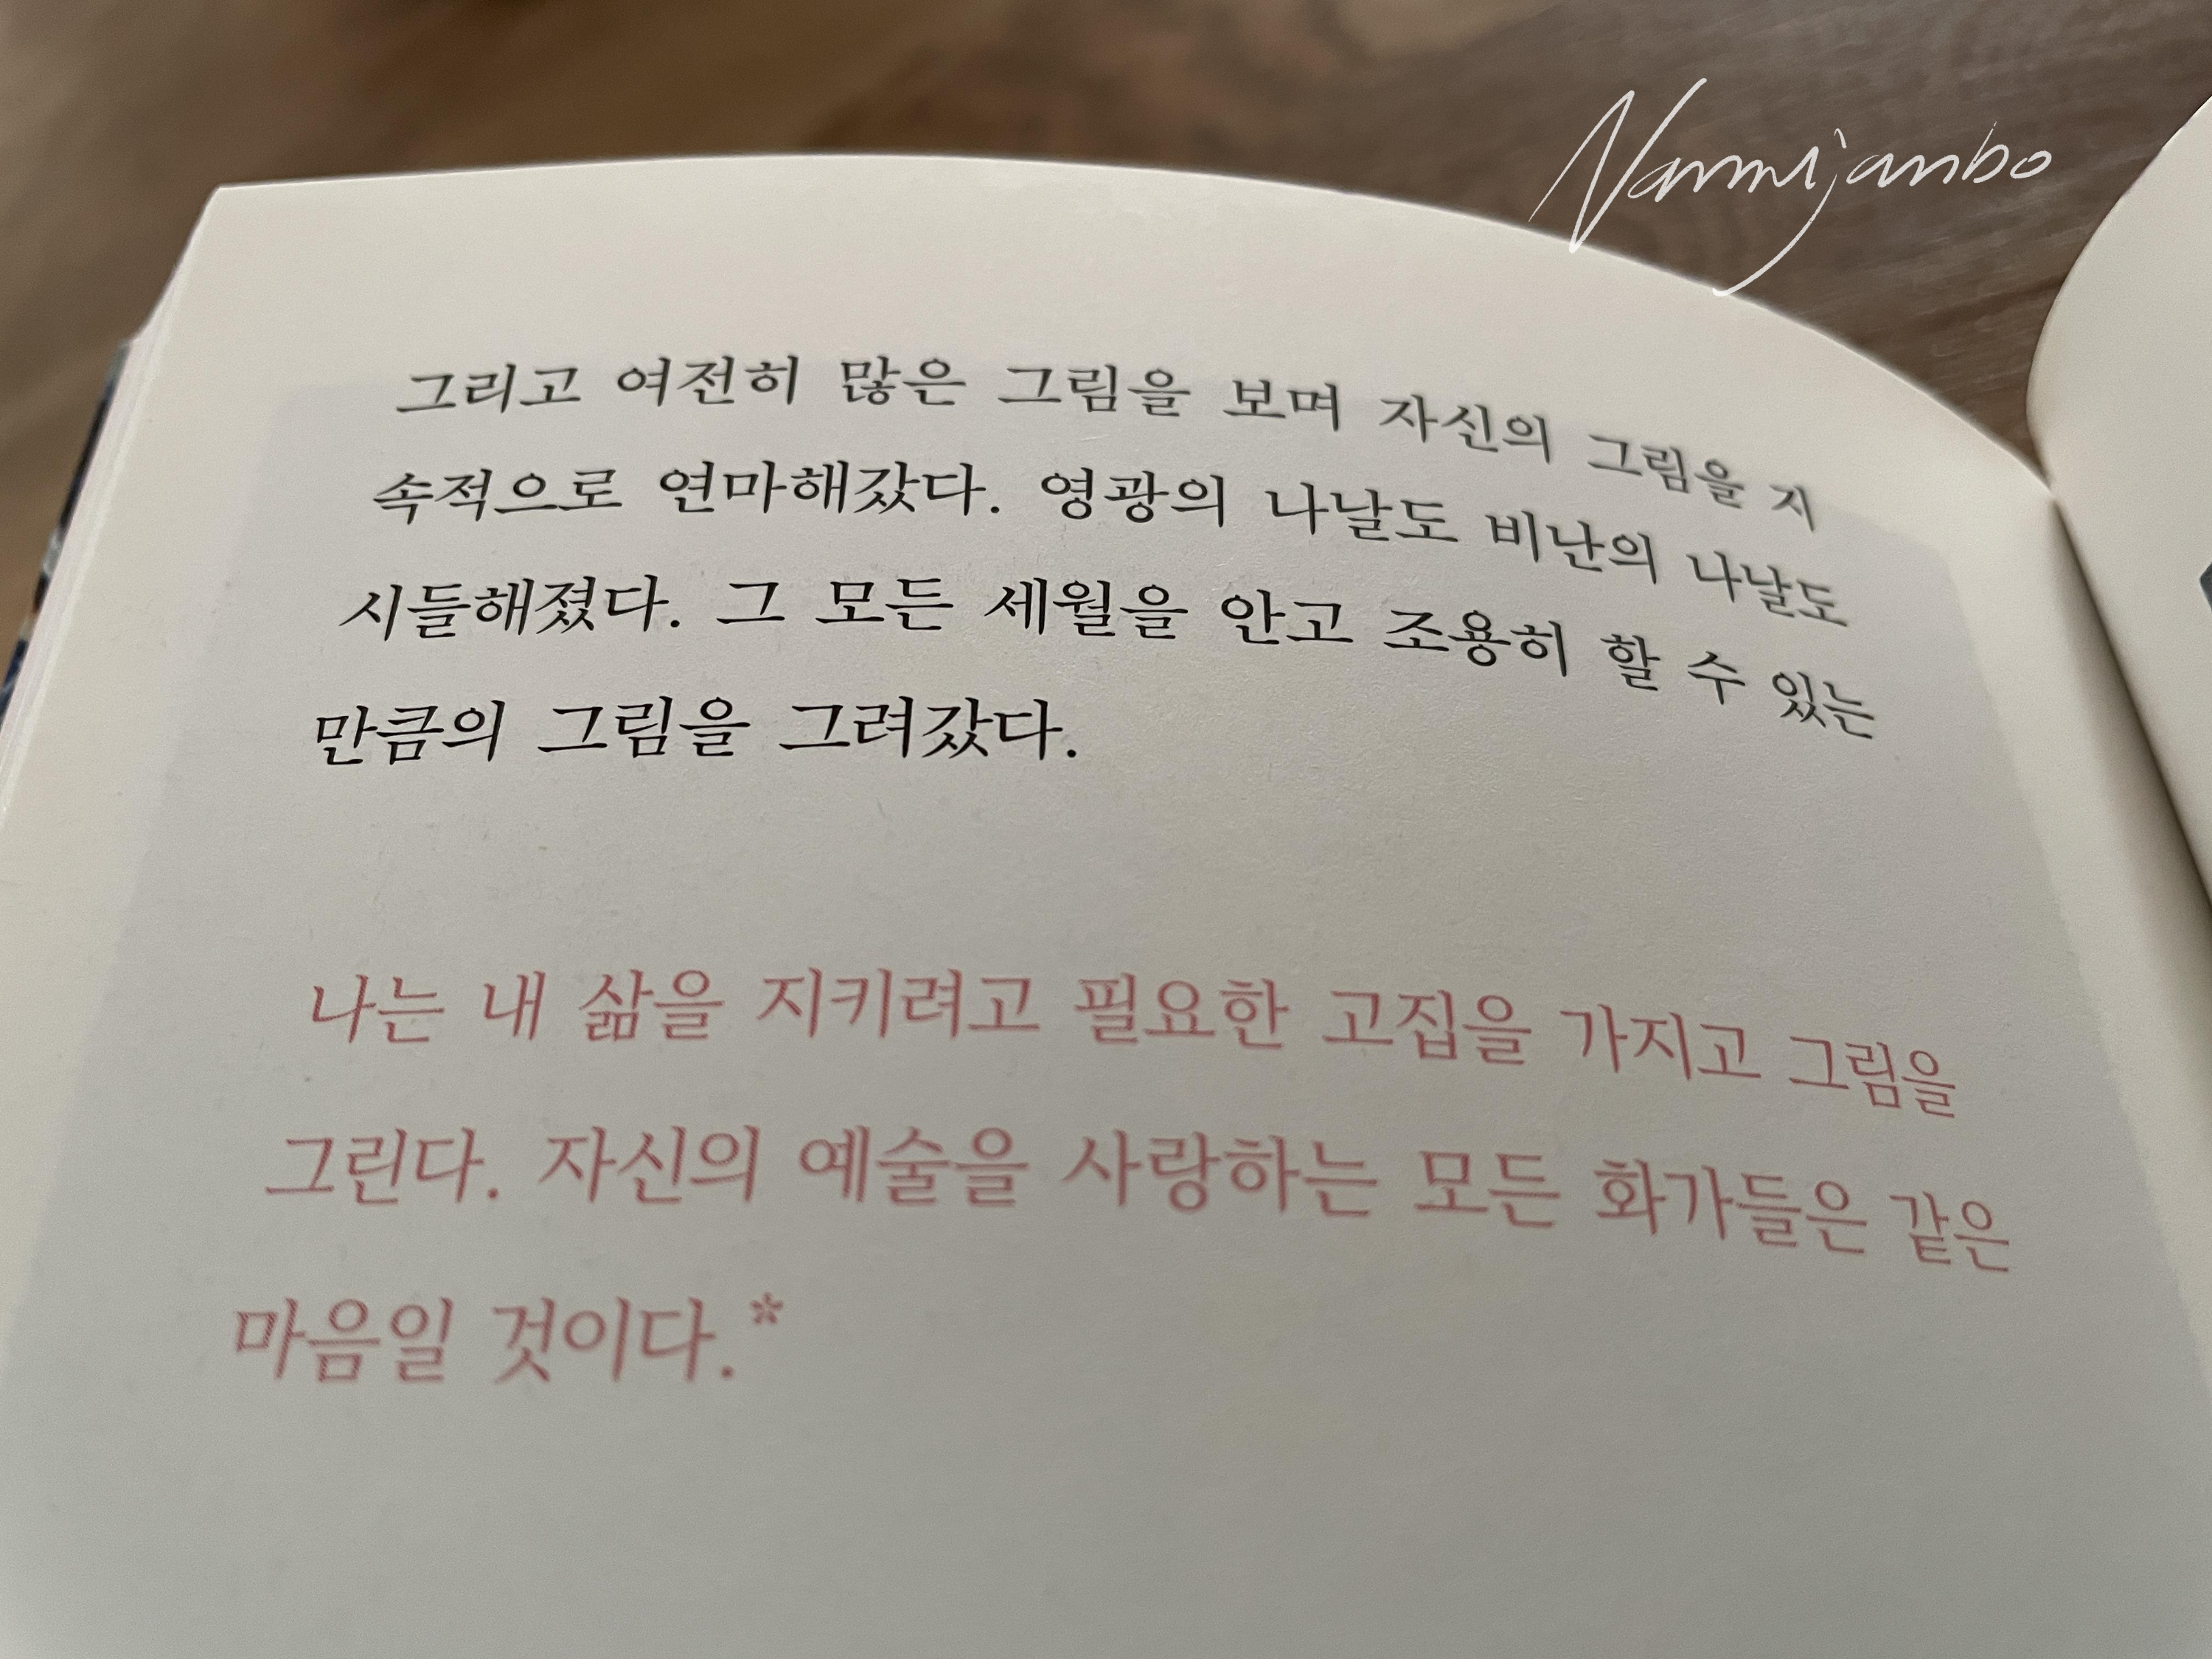 Nammijanbo
그리고 여전히 많은 그림을 보며 자신의 그림을 지
속적으로 연마해갔다. 영광의 나날도 비난의 나날도
시들해졌다. 그 모든 세월을 안고 조용히 할 수 있는
만큼의 그림을 그려갔다.
나는 내 삶을 지키려고 필요한 고집을 가지고 그림을
그린다. 자신의 예술을 사랑하는 모든 화가들은 같은
마음일 것이다.*